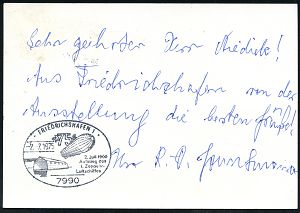 Sehr geehrter Herr Niedick!
Aus Friedrichshafen von der
Ausstellung die besten Grüße!
Ihr R. P.
FRIEDRICHSHAFEN 1
2.7.1975
2. Juli 1900
Aufstieg des
1. Zeppelin-
Luftschiffes
7990